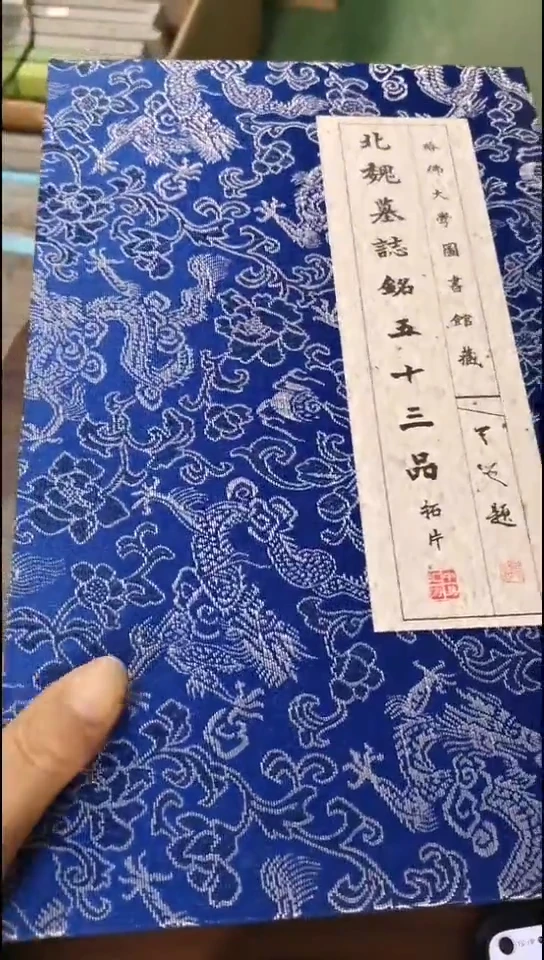 哈佛大學圖書館藏
北魏墓誌銘五十三品 拓片
題